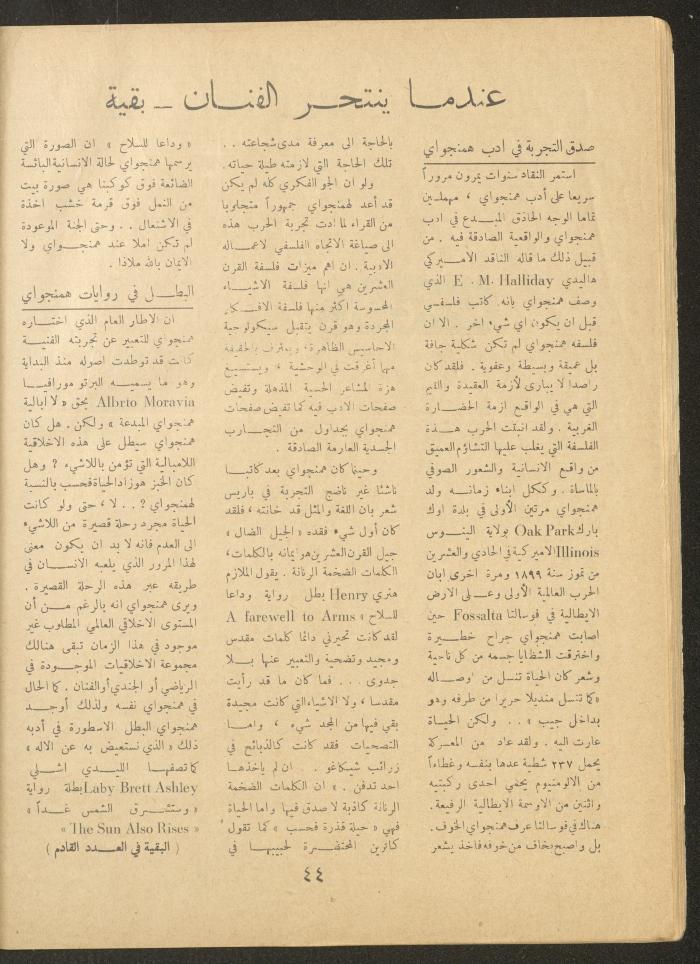 عندما ينتحر الفنان – بقية
صدق التجربة في ادب همنجواي
استمر النقاد سنوات يمرون مروراً
سريعا على أدب همنجواي ، مهملين
تماما الوجه الخاذق المبدع في ادب
همنجواي والواقعية الصادقة فيه . من
قبيل ذلك ما قاله الناقد الاميركي
هاليدي E . M. Halliday الذي
وصف همنجواي بانه كاتب فلسفي
قبل ان يكون اي شيء اخر . الا ان
فلسفة همنجواي لم تكن شكلية جافة
بل عميقة وبسيطة وعفوية . فلقد كان
راصدا لا يبارى لأزمة العقيدة والقيم
التي هي في الواقع ازمة الحضارة
الغربية . ولقد انبتت الحرب هذة
الفلسفة التي يغلب عليها التشاؤم العميق
من واقع الانسانية والشعور الصوفي
بالمأساة . وككل ابناء زمانه ولد
همنجواي مرتين الأولى في بلدة اوك
بارك Oak Park بولاية الينوس
Illinois الاميركية في الحادي والعشرين
من تموز سنة ١٨٩٩ ومرة اخرى ابان
الحرب العالمية الأولى وعلى الارض
الايطالية في فوسالتا Fossalta حين
اصابت همنجواي جراح خطيرة
واخترقت الشظايا جسمه من كل ناحية
وشعر كان الحياة تنسل من اوصاله
« كما تنسل منديلا حريرا من طرفه وهو
بداخل جيب » . . ولكن الحياة
عارت اليه . ولقد عاد من المعركة
يحمل ٢٣٧ شظية عدها بنفسه وغطاءاً
من الالومنيوم يحمي احدى ركبتيه
واثنين من الاوسمة الايطالية الرفيعة.
هناك في فوسالتا عرف همنجواي الخوف.
بل واصبح يخاف من خوفه فاخذ يشعر
بالحاجة الى معرفة مدى شجاعته . .
تلك الحاجة التي لازمته طيلة حياته.
ولو ان الجو الفكري كله لم يكن
قد أعد لهمنجواي جمهوراً متجاوبا
من القراء لما ادت تجربة الحرب هذه
الى صياغة الاتجاه الفلسفي لاعماله
الادبية . ان اهم ميزات فلسفة القرن
العشرين هي انها فلسفة الاشياء
المحسوسة اكثر منها فلسفة الافكار
المجردة وهو قرن يتقبل سيكولوجية
الاحاسيس الظاهرة ، ويعترف بالحقيقة
مهما أغرقت في الوحشية ، ويستسيغ
هزة المشاعر الحسية المذهلة وتفيض
صفحات الادب فيه كما تفيض صفحات
همنجواي بجداول من التجارب
الجسدية العارمة الصادقة .
وحينما كان همنجواي بعد كاتبا
ناشئا غير ناضج التجربة في باريس
شعر بان اللغة والمثل قد خانته ، فلقد
كان أول شيء فقده « الجيل الضال »
جيل القرن العشرين هو ايمانه بالكلمات ،
الكلمات الضخمة الرنانة . يقول الملازم
هنري Henry بطل رواية وداعا
للسلاح » A farewell to Arms
لقد كانت تحيرني دائما كلمات مقدس
ومجيد وتضحية والتعبير عنها بلا
جدوى . . . فما كان ما قد رأيت
مقدسا ، ولا الاشياء التي كانت مجيدة
بقي فيها من المجد شيء ، واما
التضحيات فقد كانت كالذبائح في
زرائب شيكاغو . . ان لم ياخذها
احد تدفن . » ان الكلمات الضخمة
الرنانة كاذبة لا صدق فيها واما الحياة
فهي « حيلة قذرة فحسب » كما تقول
كاثرين المحتضرة لحبيبها في
« وداعا للسلاح » ان الصورة التي
يرسمها همنجواي لحالة الانسانية البائسة
الضائعة فوق كوكبنا هي صورة بيت
من النمل فوق قرمة خشب اخذة
في الاشتعال . . وحتى الجنة الموعودة
لم تكن املا عند همنجواي ولا
الايمان بالله ملاذا .
البطل في روايات همنجواي
ان الاطار العام الذي اختاره
همنجواي للتعبير عن تجربته الفنية
كانت قد توطدت اصوله منذ البداية
وهو ما يسميه البرتو مورافيا
Albrto Moravia بحق « لا ابالية
همنجواي المبدعة » ولكن . هل كان
همنجواي سيطل على هذه الاخلاقية
اللامبالية التي تؤمن باللاشيء ؟ وهل
كان الخبز هو زاد الحياة فحسب بالنسبة
لهمنجواي ؟ . . لا ، حتى ولو كانت
الحياة مجرد رحلة قصيرة من اللاشيء
الى العدم فانه لا بد ان يكون معنى
لهذا المرور الذي يلعبه الانسان في
طريقه عبر هذه الرحلة القصيرة .
ويرى همنجواي انه بالرغم من أن
المستوى الاخلاقي العالمي المطلوب غير
موجود في هذا الزمان تبقى هنالك
مجموعة الاخلاقيات الموجودة في
الرياضي أو الجندي أو الفنان . كما الحال
في همنجواي نفسه ولذلك أوجد
همنجواي البطل الاسطورة في أدبه
ذلك « الذي نستعيض به عن الاله »
كما تصفها الليدي اشلي
Laby Brett Ashley بطلة رواية
« وستشرق الشمس غداً »
« The Sun Also Rises »
( البقية في العدد القادم )
٤٤